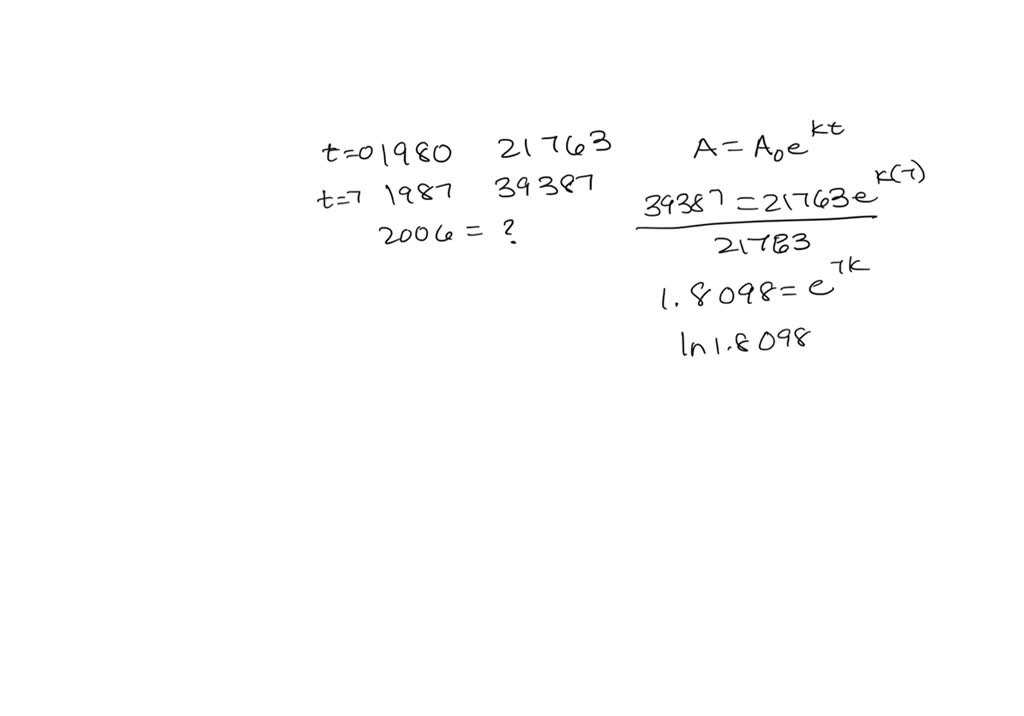 t=0 1980 21763
t=7 1987 39387
2006 = ?
A = A₀e^kt
39387 = 21763e^k(7)
21763
1.8098 = e^7k
ln 1.8098